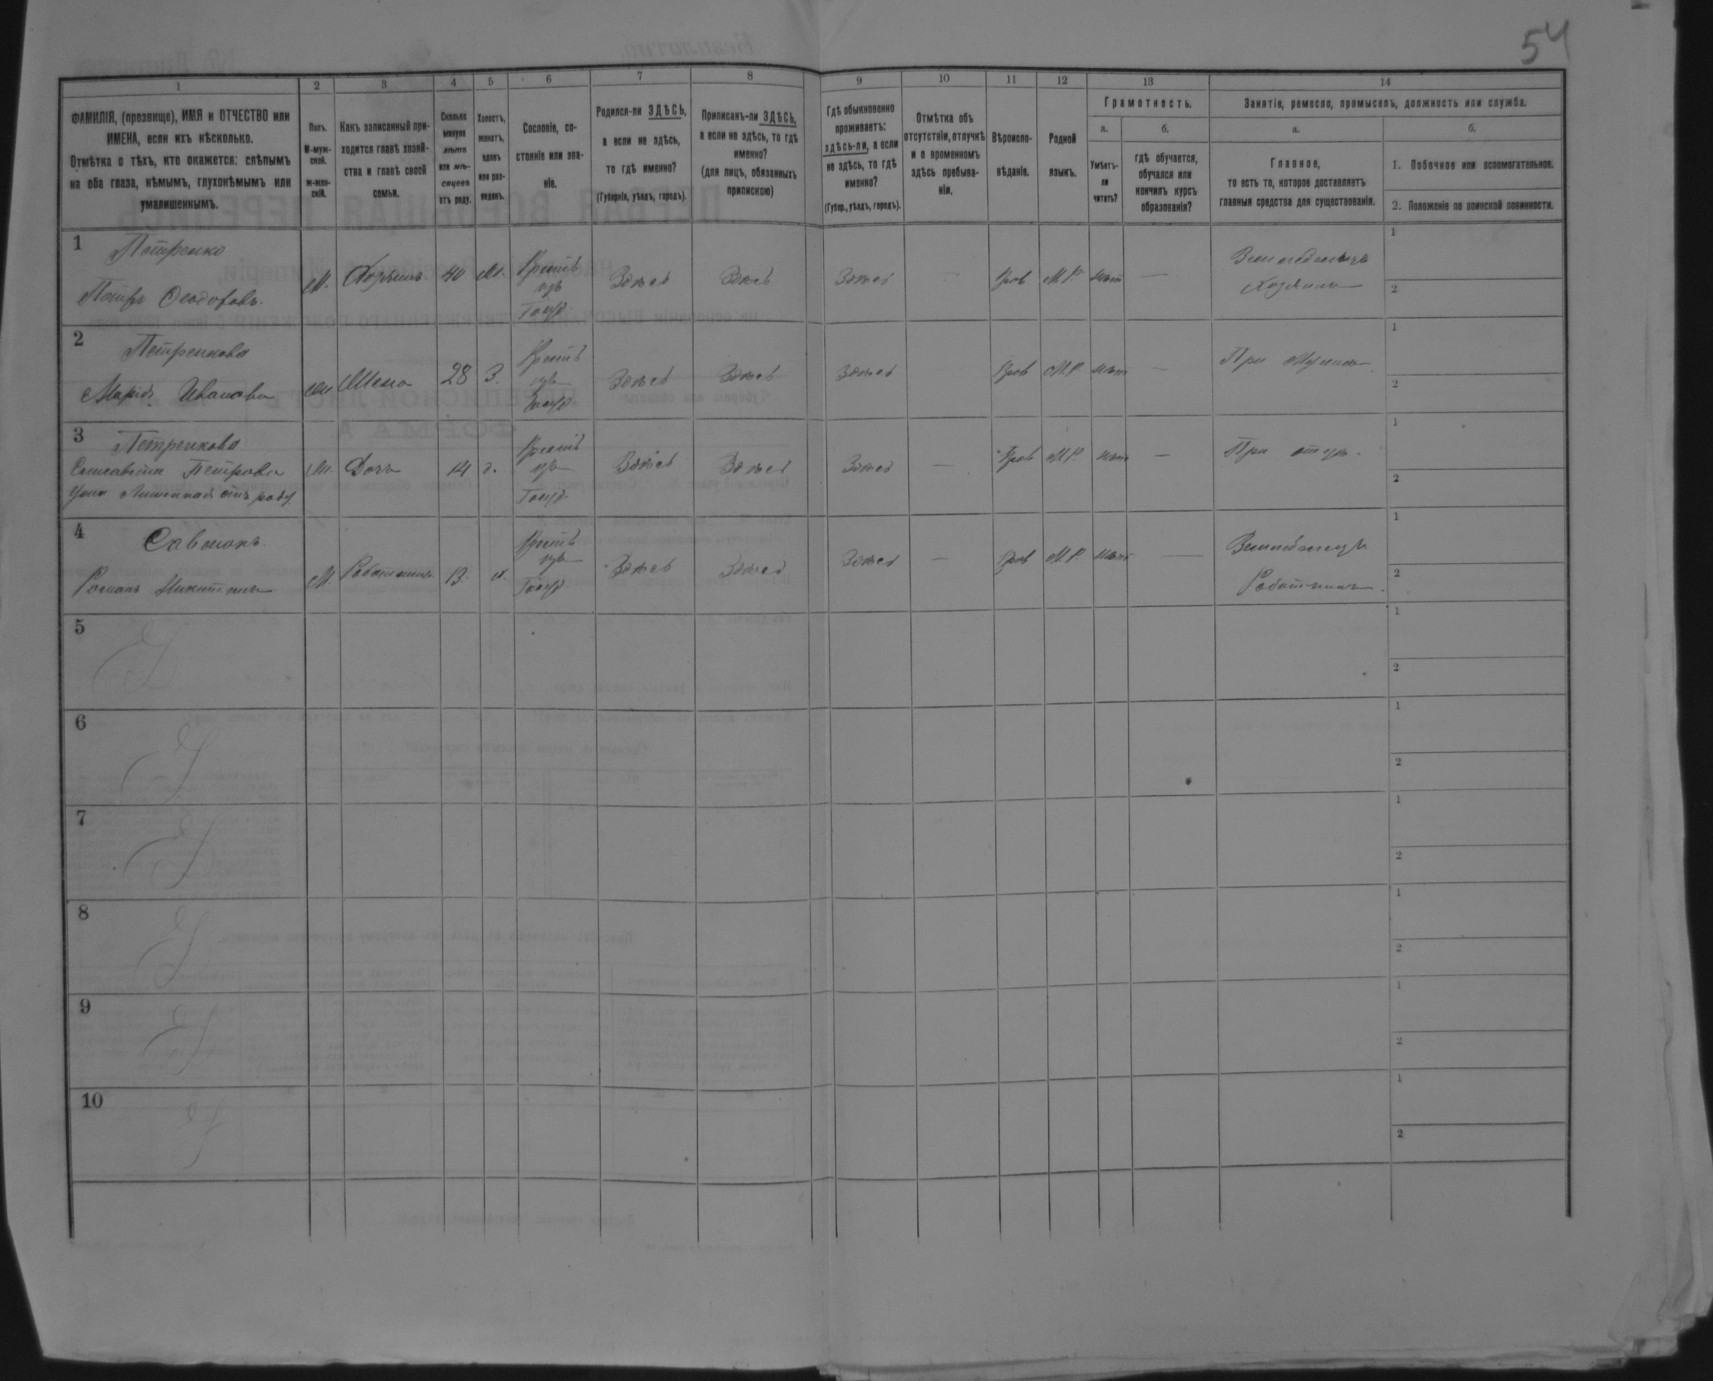 54
1
2
3
4
5
6
7
8
9
10
11
12
13
14
ФАМИЛІЯ, (прозвище), ИМЯ и ОТЧЕСТВО или
ИМЕНА, если ихъ нѣсколько.
Отмѣтка о тѣхъ, кто окажется: слѣпымъ
на оба глаза, нѣмымъ, глухонѣмымъ или
умалишеннымъ.
Полъ.
М-муж-
ской.
ж-жен-
скій.
Какъ записанный при-
ходится главѣ хозяй-
ства и главѣ своей
семьи.
Сколько
минуло
лѣтъ
или мѣ-
сяцевъ
отъ роду.
Холостъ,
женатъ,
вдовъ
или раз-
веденъ.
Сословіе, со-
стояніе или зва-
ніе.
Родился-ли ЗДѢСЬ,
а если не здѣсь,
то гдѣ именно?
(Губернія, уѣздъ, городъ).
Приписанъ-ли ЗДѢСЬ,
а если не здѣсь, то гдѣ
именно?
(для лицъ, обязанныхъ
припискою)
Гдѣ обыкновенно
проживаетъ:
здѣсь-ли, а если
не здѣсь, то гдѣ
именно?
(Губер., уѣздъ, городъ).
Отмѣтка объ
отсутствіи, отлучкѣ
и о временномъ
здѣсь пребыва-
ніи.
Вѣроиспо-
вѣданіе.
Родной
языкъ.
Грамотность.
а.
б.
Умѣетъ-
ли
читать?
гдѣ обучается,
обучался или
кончилъ курсъ
образованія?
Занятіе, ремесло, промыселъ, должность или служба.
а.
б.
Главное,
то есть то, которое доставляетъ
главныя средства для существованія.
1. Побочное или вспомогательное.
2. Положеніе по воинской повинности.
1
Петренко
Петръ Феодоровъ.
М.
Хозяинъ
40
Ж.
Крест.
изъ
Госуд.
Здѣсь
Здѣсь
Здѣсь
—
Прав
М.Р.
нѣт
—
Земледелецъ
Хозяинъ
1
2
2
Петренкова
Марія Иванова
Ж
Жена
28
З.
Крест.
изъ
Госуд.
Здѣсь
Здѣсь
Здѣсь
Прав
М.Р.
нѣт
—
При мужи
1
2
3
Петренкова
Елисавета Петрова
Ж.
Дочь
14
д.
Крест.
изъ
Госуд.
Здѣсь
Здѣсь
Здѣсь
—
Прав
М.Р.
нѣт
—
При отцу.
1
2
4
Савлюкъ
Романъ Никитинъ
М.
Работникъ
13
х.
Крест.
изъ
Госуд.
Здѣсь
Здѣсь
Здѣсь
—
Прав
М.Р.
нѣт
—
Земледелецъ
Работникъ
1
2
5
1
2
6
1
2
7
1
2
8
1
2
9
1
2
10
1
2